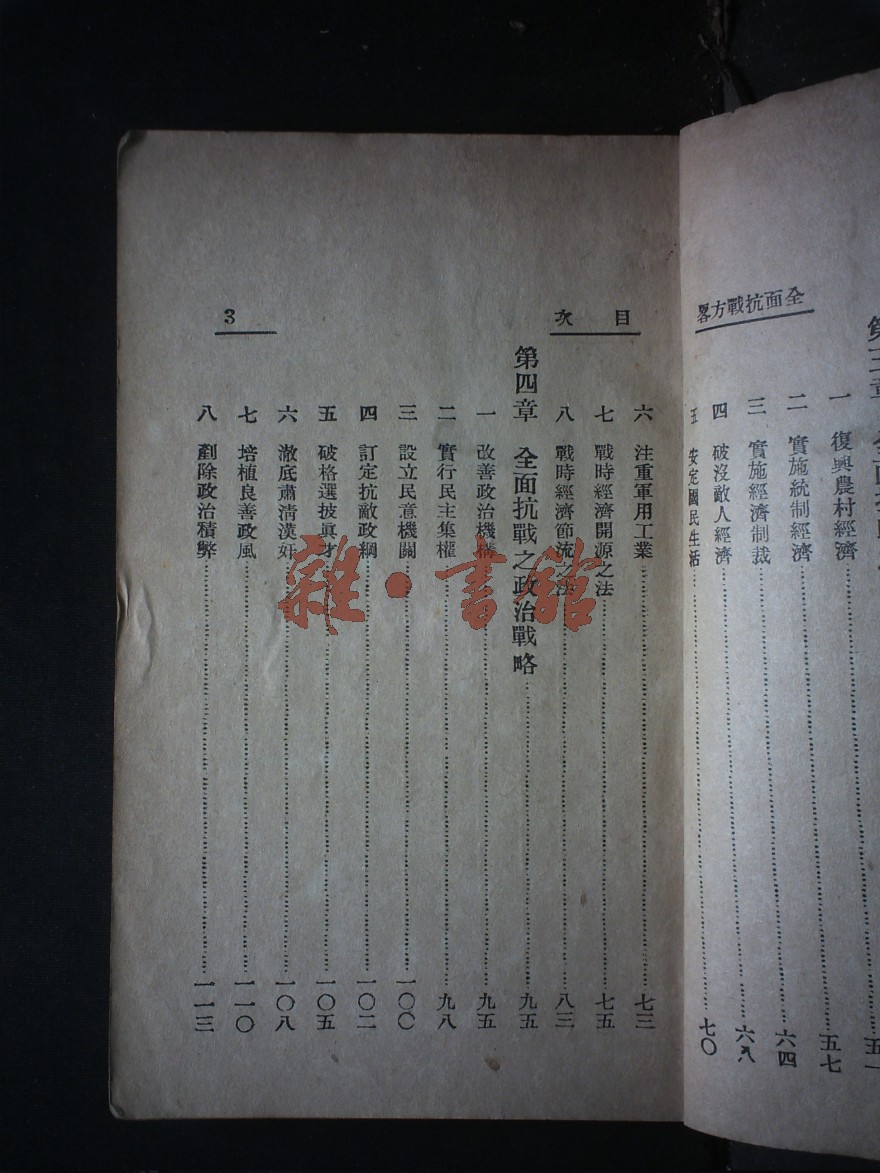 全面抗戰方畧
第三章
一 復興農村經濟 五七
二 實施統制經濟 六四
三 實施經濟制裁 六八
四 破沒敵人經濟
五 安定國民生活 七〇
目次
六 注重軍用工業 七三
七 戰時經濟開源之法 七五
八 戰時經濟節流之法 八三
第四章 全面抗戰之政治戰略 九五
一 改善政治機構 九五
二 實行民主集權 九八
三 設立民意機關 一〇〇
四 訂定抗敵政綱 一〇二
五 破格選拔眞才 一〇五
六 澈底肅淸漢奸 一〇八
七 培植良善政風 一一〇
八 剷除政治積弊 一一三
3
雜·書館